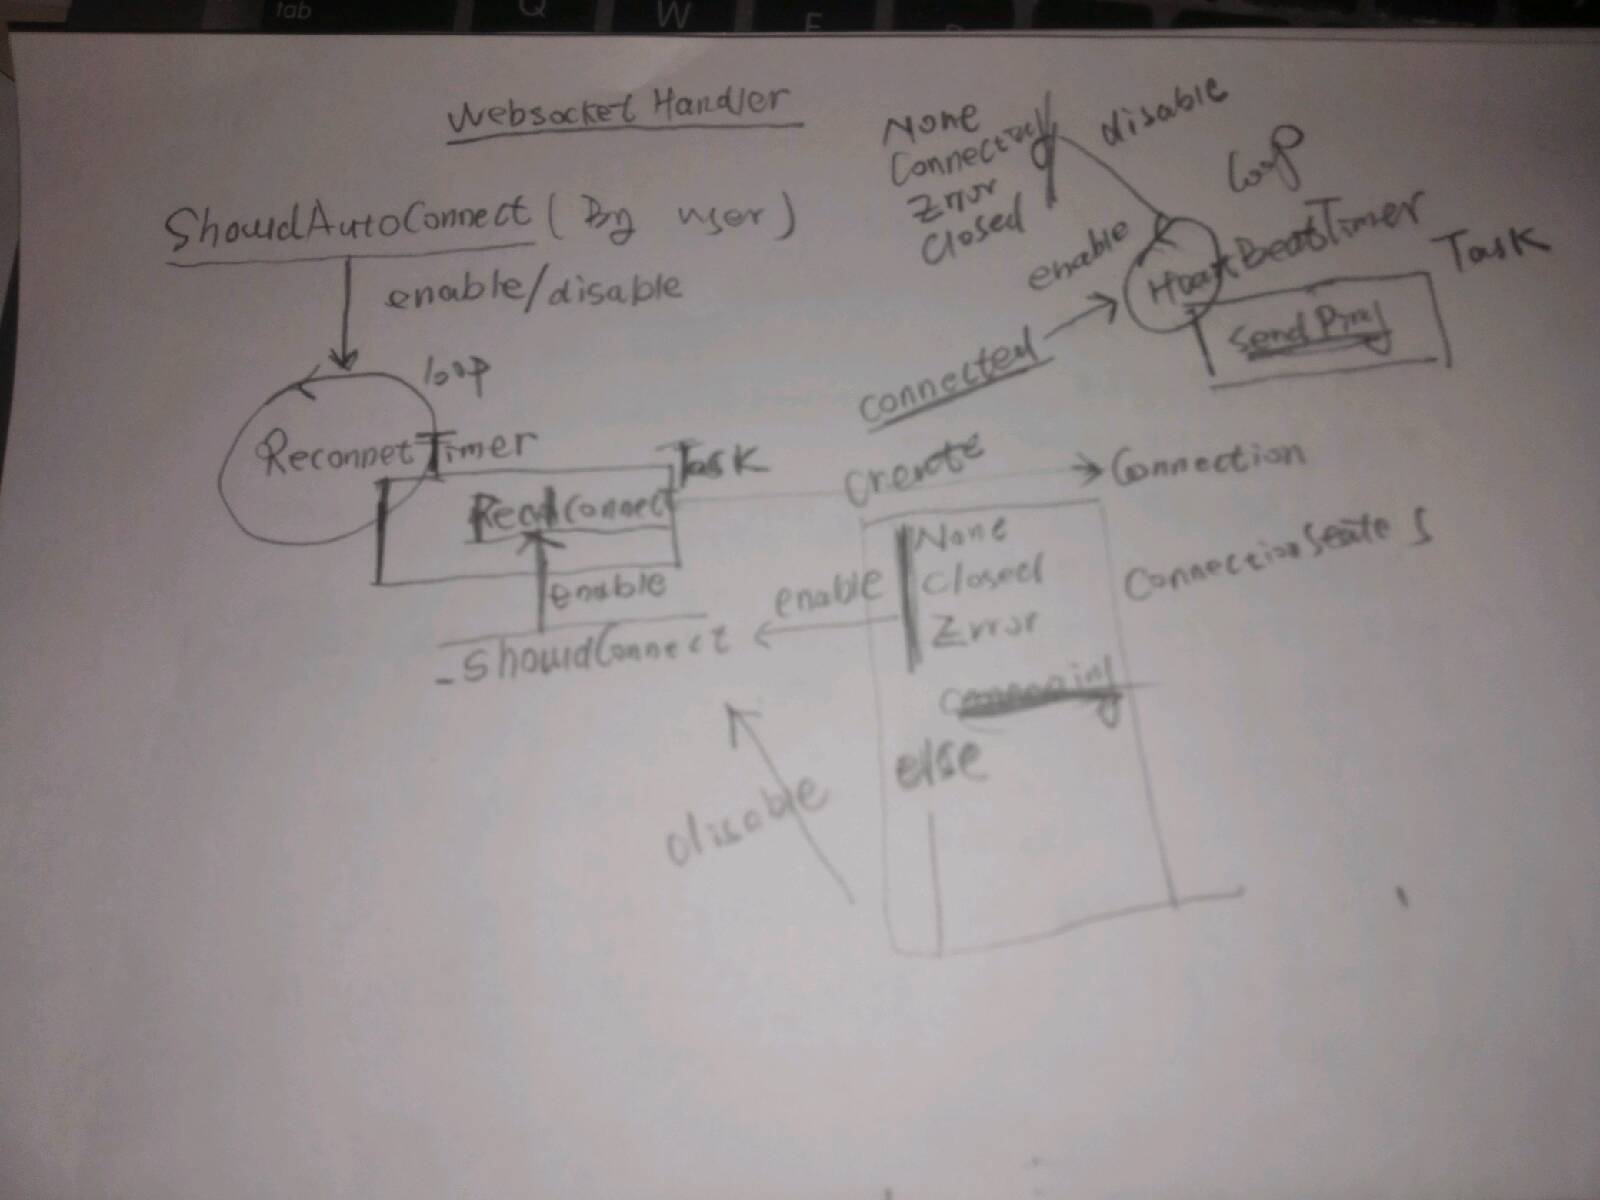 tab
Q
W
Websocket Handler
ShouldAutoConnect (By user)
enable/disable
loop
Reconnet Timer
Task
ReadConnect
enable
_ShouldConnect
None
Connecting
Error
Closed
disable
loop
enable
HeartBeatTimer
Task
Send Ping
connected
Create
Connection
ConnectionStates
None
Closed
Error
else
enable
disable